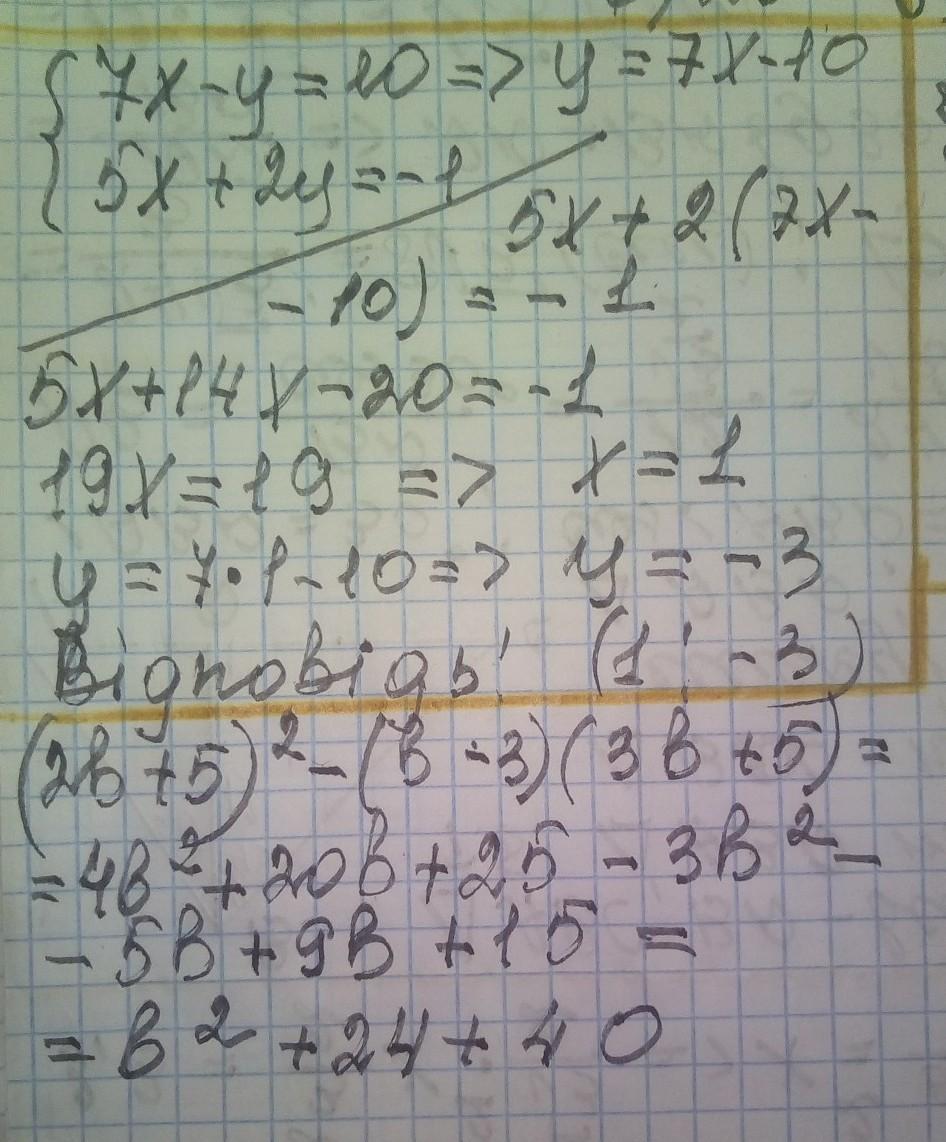 { 7x - y = 10 => y = 7x - 10
5x + 2y = -1
5x + 2(7x -
- 10) = - 1
5x + 14x - 20 = -1
19x = 19 => x = 1
y = 7·1 - 10 => y = -3
Відповідь: (1; -3)
(2в + 5)² - (в - 3)(3в + 5) =
= 4в² + 20в + 25 - 3в² -
- 5в + 9в + 15 =
= в² + 24 + 40